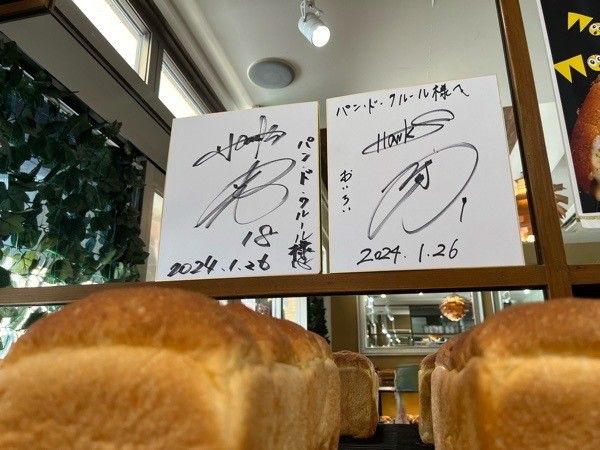 Hawks
パン・ド・クルール様
18
2024.1.26
パン・ド・クルール様へ
Hawks
2024.1.26